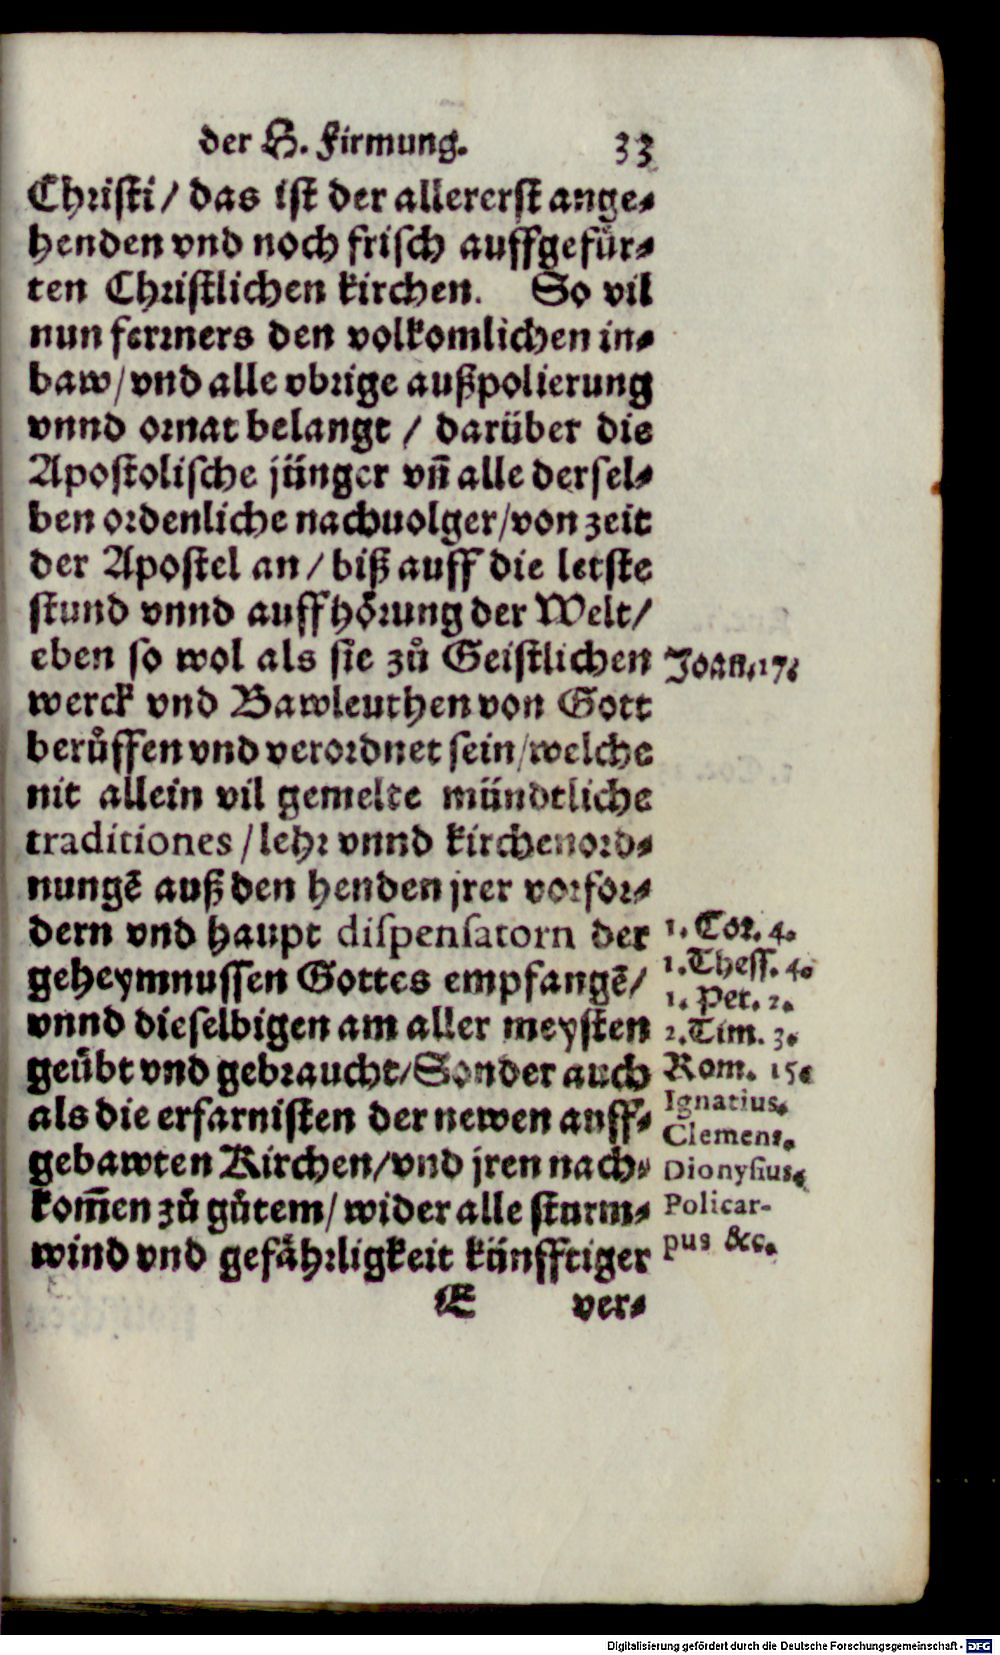 der H. Firmung. 33
Christi / das ist der allererst ange⸗
henden vnd noch frisch auffgefür⸗
ten Christlichen kirchen. So vil
nun ferrners den volkomlichen in⸗
baw / vnd alle vbrige außpolierung
vnnd ornat belangt / darüber die
Apostolische jünger vn̄ alle dersel⸗
ben ordenliche nachuolger / von zeit
der Apostel an / biß auff die letste
stund vnnd auffhörung der Welt /
eben so wol als sie zů Geistlichen
Joan. 17.
werck vnd Bawleuthen von Gott
berůffen vnd verordnet sein / welche
nit allein vil gemelte mündtliche
traditiones / lehr vnnd kirchenord⸗
nungē auß den henden jrer vorfor⸗
dern vnd haupt dispensatorn der
1. Cor. 4.
geheymnussen Gottes empfangē /
1. Thess. 4.
1. Pet. 2.
vnnd dieselbigen am aller meysten
2. Tim. 3.
geübt vnd gebraucht / Sonder auch
Rom. 15.
als die erfarnisten der newen auff⸗
Ignatius.
Clemens.
gebawten Kirchen / vnd jren nach⸗
Dionysius.
kom̄en zů gůtem / wider alle sturm⸗
Policar-
wind vnd gefährligkeit künfftiger
pus &c.
E ver⸗
Digitalisierung gefördert durch die Deutsche Forschungsgemeinschaft - DFG